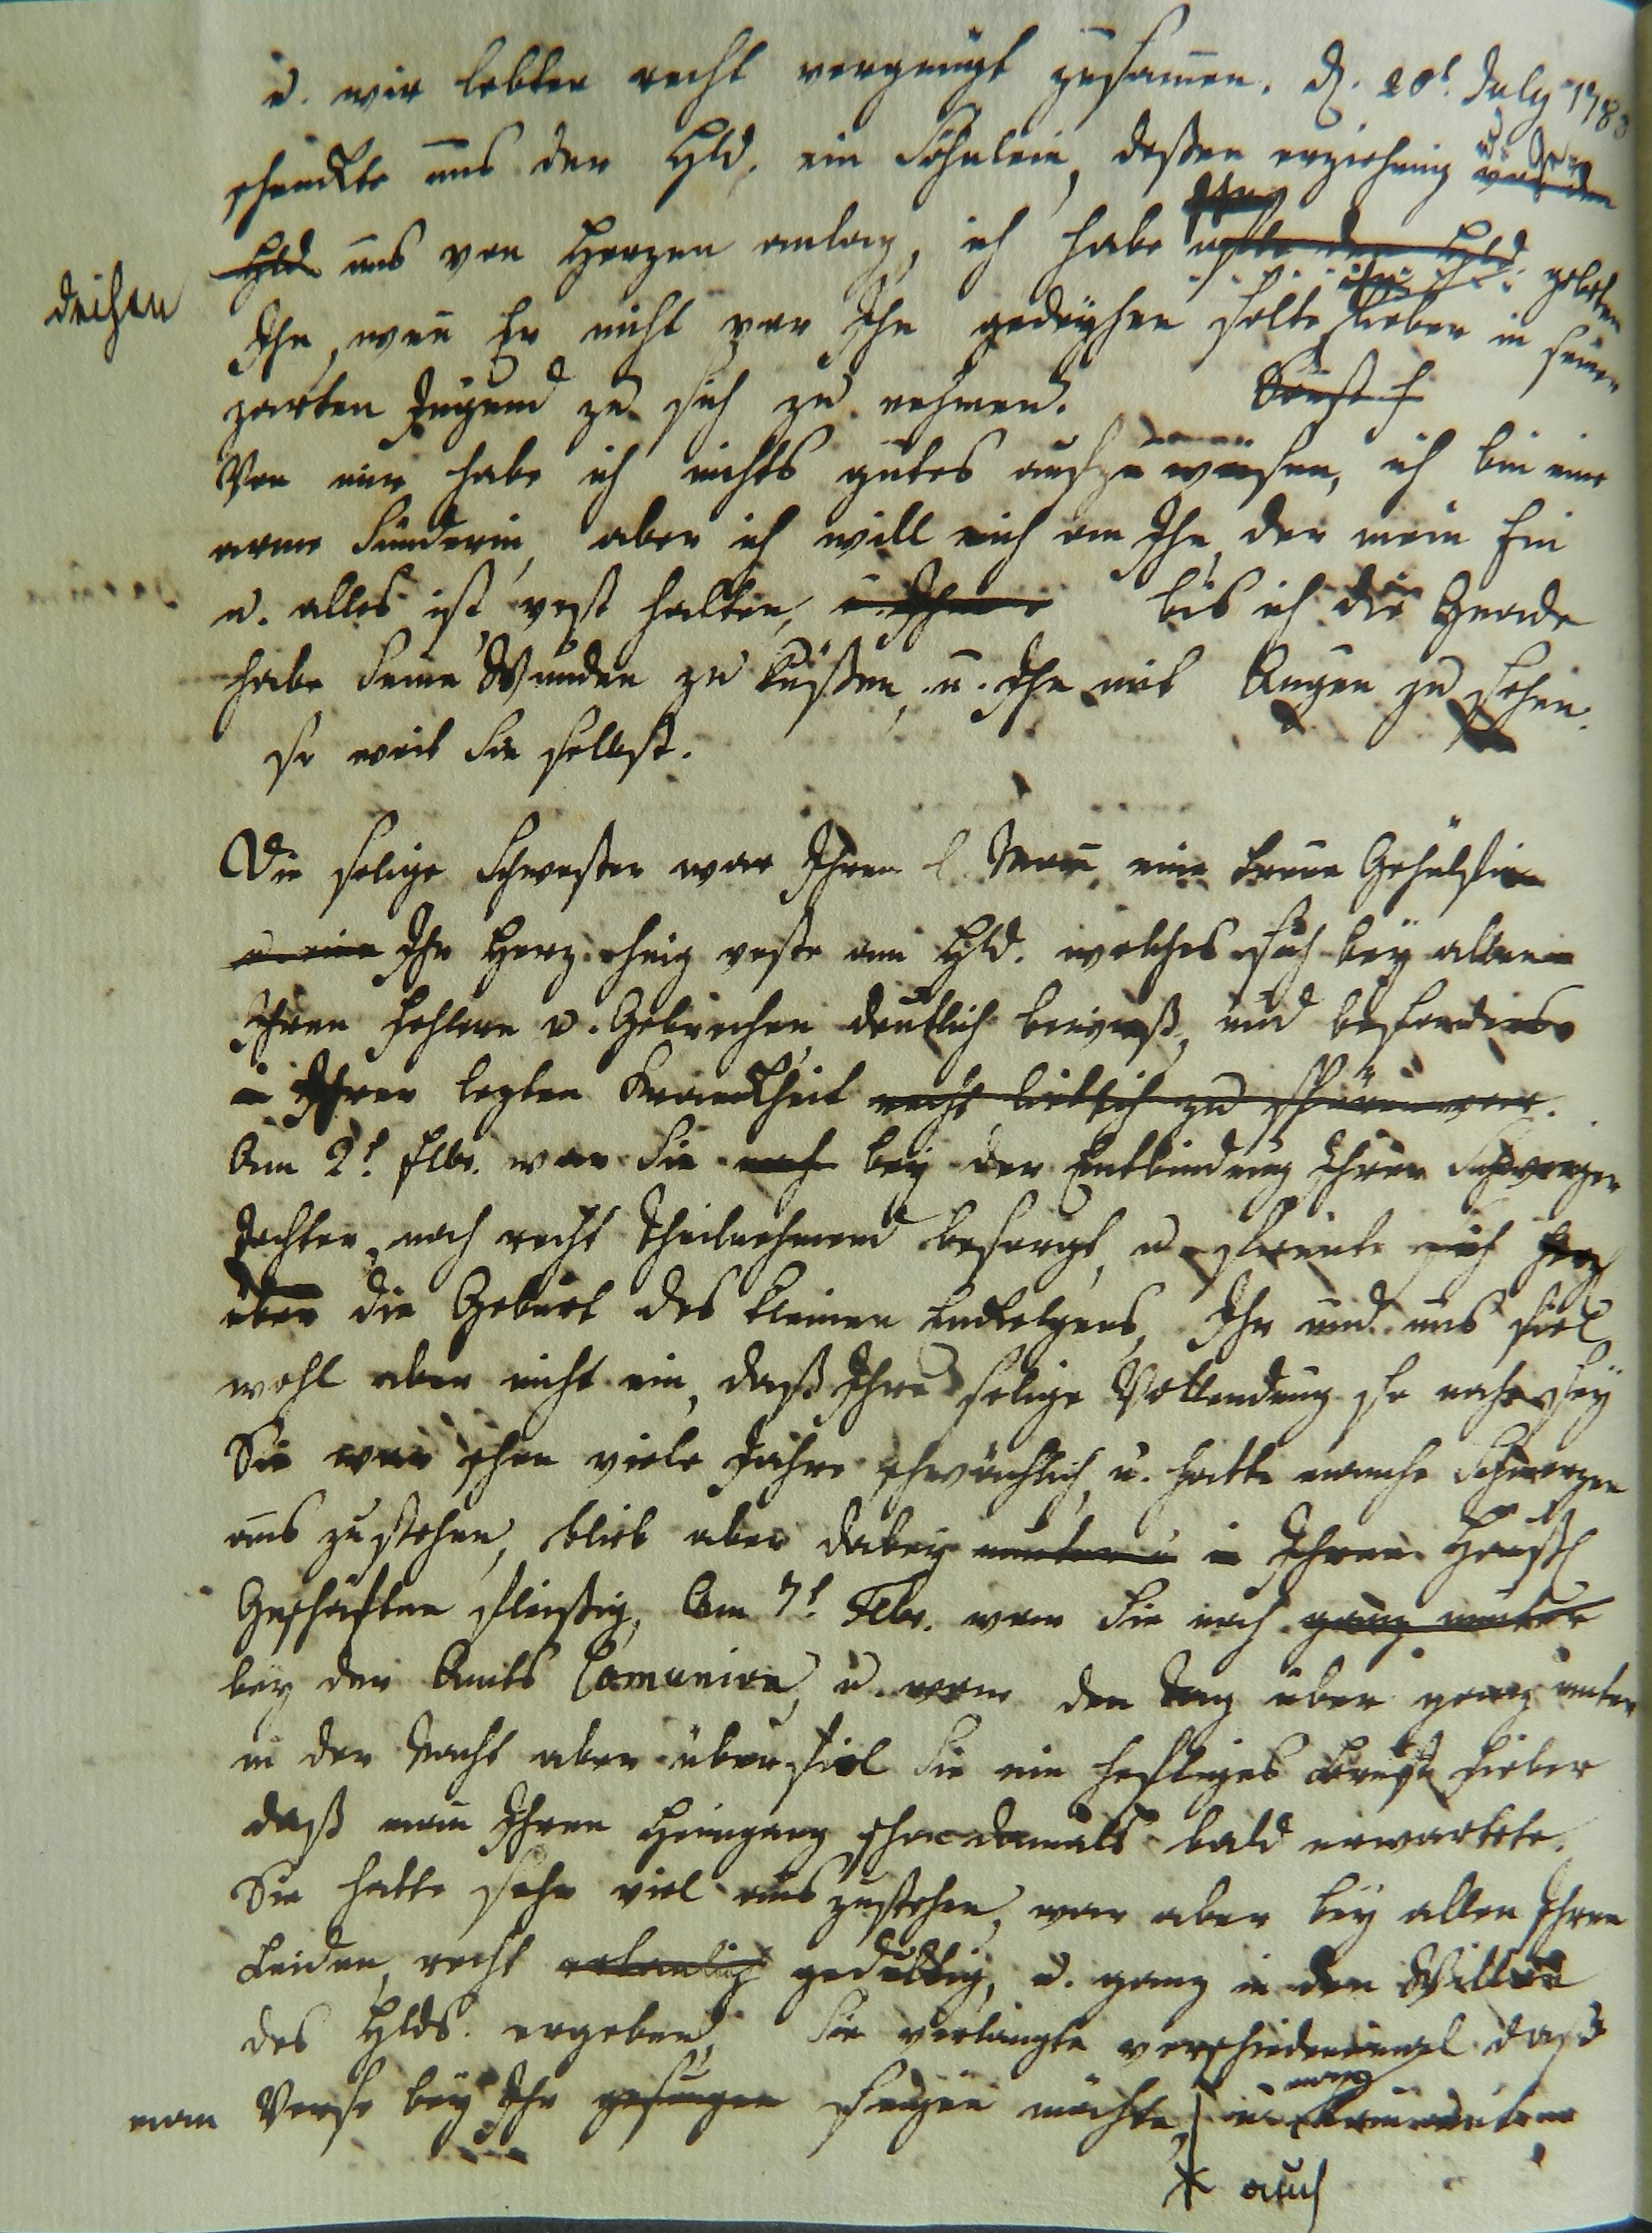 u. wir lebten recht vergnügt zusamen. d. 20t July 178
schenckte uns der Hld. ein Söhnlein, deßen erziehung
Hld uns von Herzen anlag, ich habe gebeten
deihen
Ihn, wen Er nicht vor Ihn gedeyhen solte, lieber in seiner
zarten Jugend zu sich zu nehmen. Sonst
Von mir habe ich nichts gutes aufzuweisen, ich bin eine
arme Sünderin, aber ich will mich an Ihn, der mein Ein
u. alles ist, vest halten, u. Ihn bis ich die Gnade
habe Seine Wunden zu küßen, u. Ihn mit Augen zu sehen.
so weit Sie selbst.
Die selige Schwester war Ihrem l. Man, eine treue Gehülfin
u. eine Ihr Herz hing veste am Hld. welches sich bey allen
Ihren Fehlern u. Gebrechen deutlich bewieß, und besonders
in Ihrer lezten Kranckheit recht lieblich zu spüren war.
Am 2t Febr. war Sie noch bey der Entbindung Ihrer Schwieger
Tochter, noch recht theilnehmend besorgt, u. freute sich
über die Geburt des kleinen Enckelgens, Ihr und uns fiel
wohl aber nicht ein, daß Ihre selige Vollendung so nahe sey
Sie war schon viele Jahre schwächlich, u. hatte manche Schmerzen
aus zustehen, blieb aber dabey munter u in Ihren Hauß
Geschäften fleißig, Am 7t Febr. war Sie noch ganz munter
bey der Amts Comunion, u. war den Tag über ganz munter
in der Nacht aber überfiel Sie ein heftiges Brust Fieber
daß man Ihren Heimgang schon damals bald erwartete.
Sie hatte sehr viel auszustehen, war aber bey allen Ihren
Leiden, recht gedultig, u. ganz in den Willen
des Hlds. ergeben, Sie verlangte verschiedenemal daß
man Verse bey Ihr gesungen singen möchte, u.
* auch